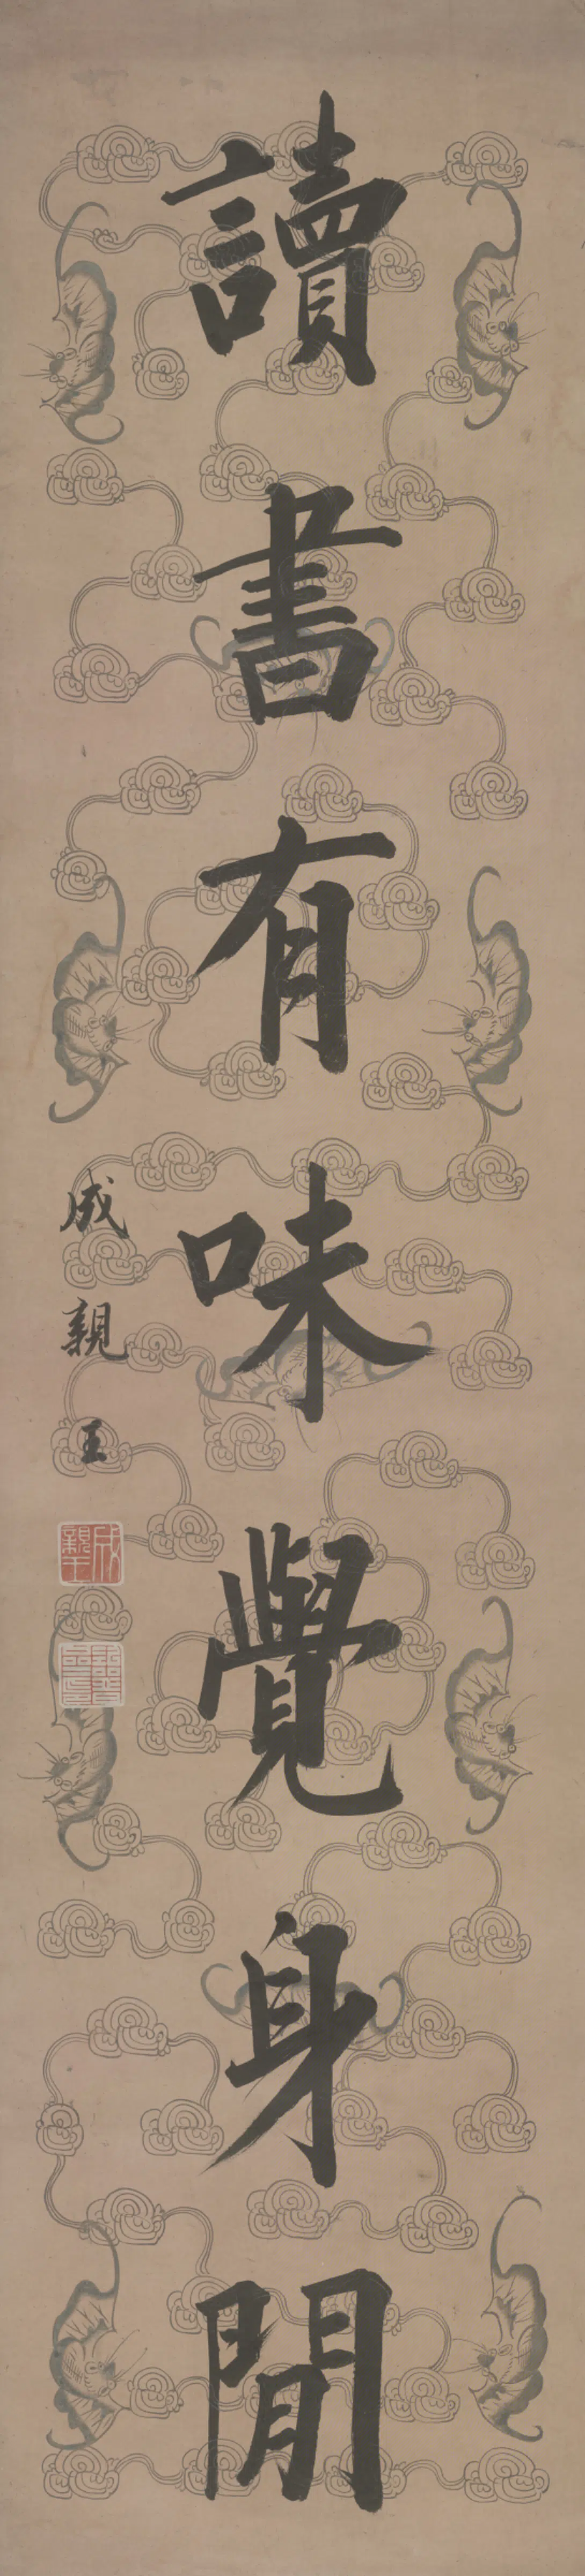 讀書有味覺身閒
成親王
成親王